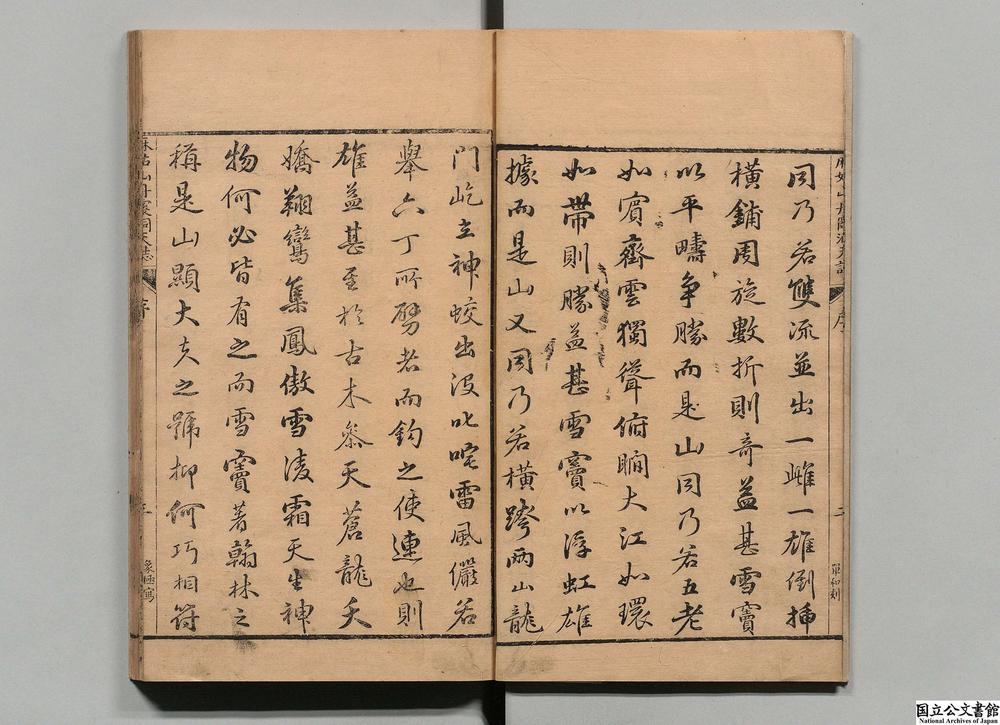 同乃若雙流並出一雌一雄倒插
橫鋪周旋數折則奇益甚雪竇
以平疇爭勝而是山同乃若五老
如賓齊雲獨聳俯瞷大江如環
如帶則勝益甚雪竇以浮虹雄
據而是山又同乃若橫跨兩山龍
門屹立神蛟出沒叱咤雷風儼若
舉六丁所劈者而鈎之使連也則
雄益甚至於古木參天蒼龍夭
嬌翔鸞集鳳傲雪凌霜天生神
物何必皆有之而雪竇著翰林之
稱是山顯大夫之號抑何巧相符
麻姑山丹霞洞天志
序
二
麻姑山丹霞洞天志
序
三
国立公文書館
National Archives of Japan